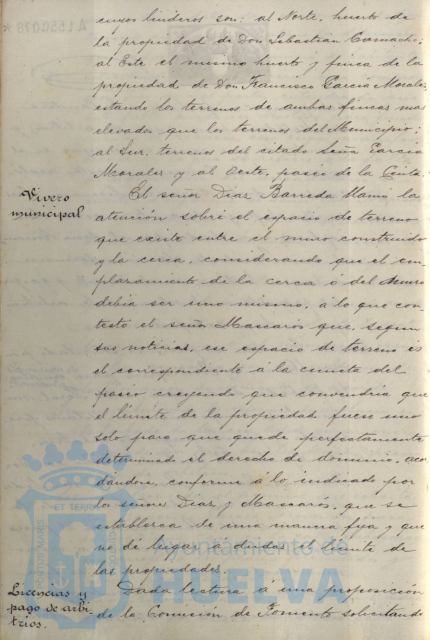 cuyos linderos son: al Norte, huerto de
la propiedad de Don Sebastián Camacho;
al Este el mismo huerto y finca de la
propiedad de Don Francisco García Morales,
estando los terrenos de ambas fincas mas
elevados que los terrenos del Municipio;
al Sur, terrenos del citado Señor García
Morales y al Oeste, paseo de la Cinta.
Vivero
municipal
El señor Díaz Barreda llamó la
atención sobre el espacio de terreno
que existe entre el muro construido
y la cerca, considerando que el em-
plazamiento de la cerca ó del muro
debía ser uno mismo, á lo que con-
testó el señor Mascarós que, según
sus noticias, ese espacio de terreno es
el correspondiente á la cuneta del
paseo creyendo que convendría que
el límite de la propiedad fuese uno
solo para que quede perfectamente
determinado el derecho de dominio, acor-
dándose, conforme á lo indicado por
los señores Díaz y Mascarós, que se
establezca de una manera fija y que
no dé lugar a dudas el límite de
las propiedades.
Licencias y
pago de arbi-
trios.
Dada lectura á una proposición
de la Comisión de Fomento solicitando
A1550078*
PORTUS MARIS
ET TERRAE
Ayuntamiento de
HUELVA